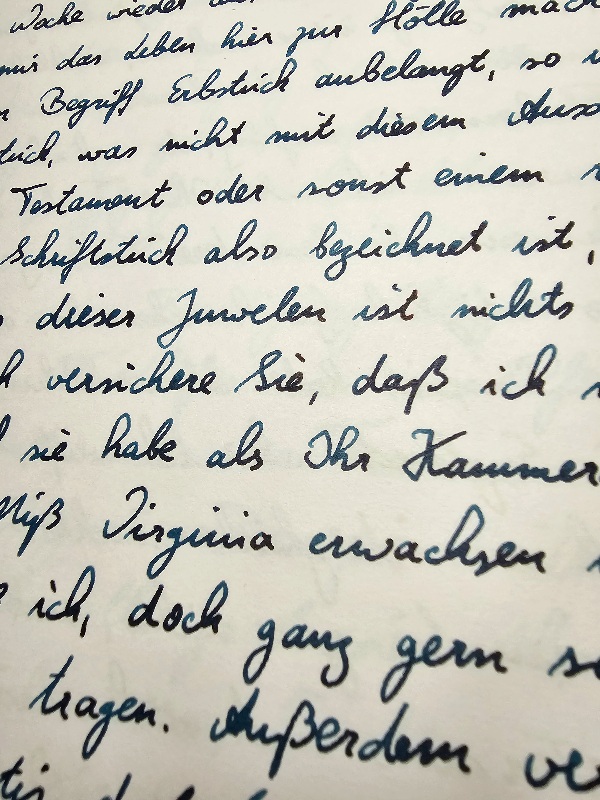 Woche wieder
mir das Leben hier zur Hölle mach
Begriff Erbstück anbelangt, so
tück, was nicht mit diesem Ausd
Testament oder sonst einem
Schriftstück also bezeichnet ist,
dieser Juwelen ist nichts
versichere Sie, daß ich
sie habe als Ihr Kammer
Miß Virginia erwachsen
ich, doch ganz gern se
tragen. Außerdem ver